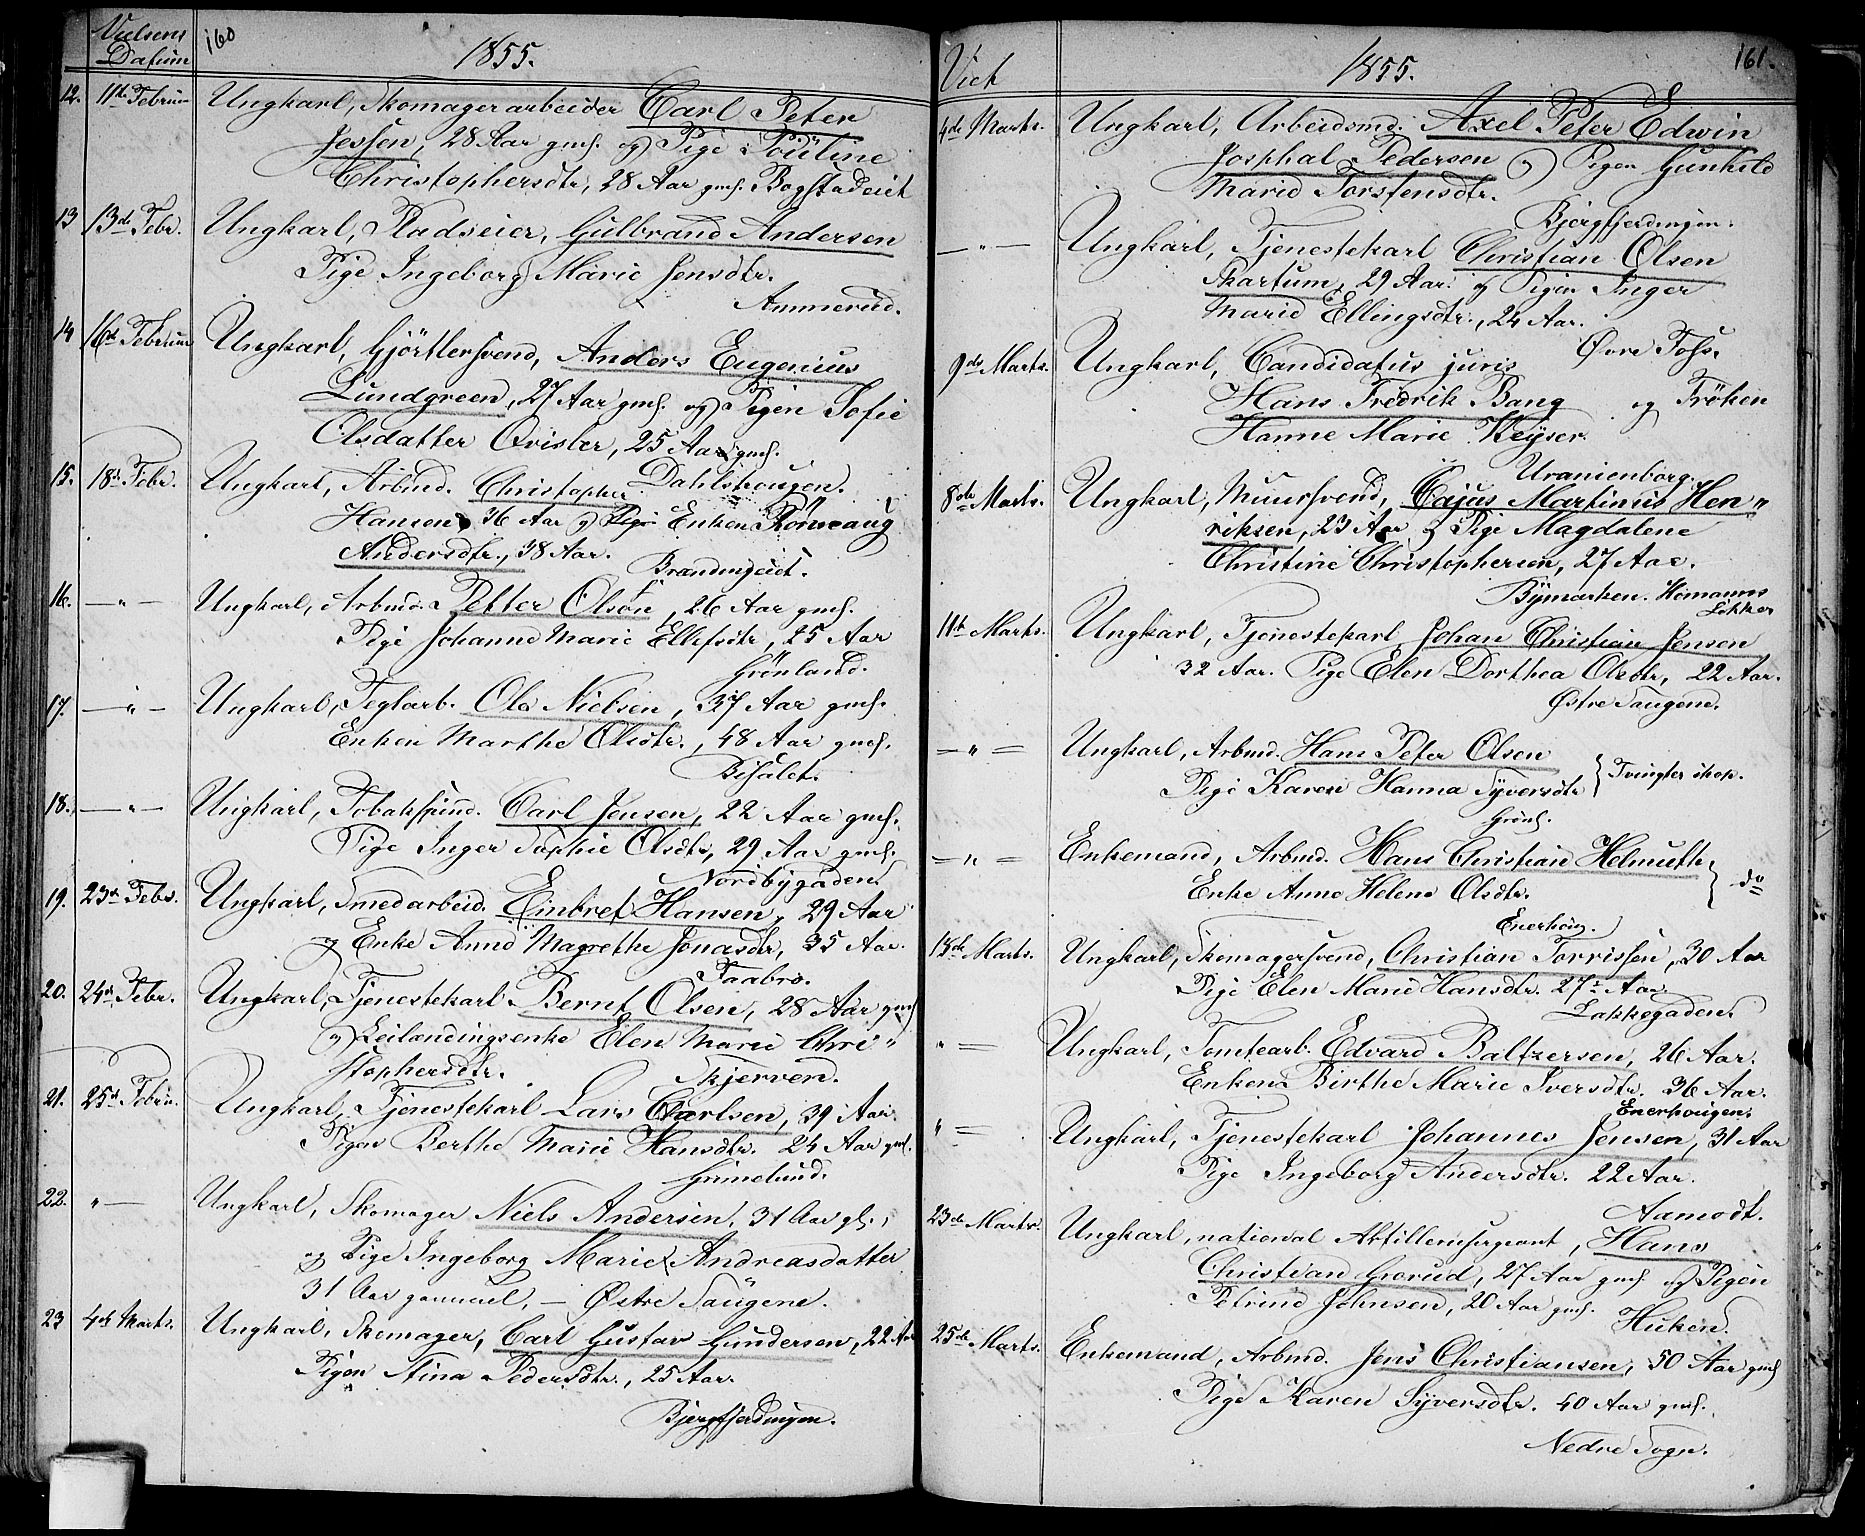 160
1855.
Vielsens
Datum
12. 11te Februar Ungkarl, Skomagerarbeider Carl Peter
Jessen, 28 Aar gml. og Pige Pouline
Christophersdtr, 28 Aar gml. Bogstadeiet
13 13de Febr. Ungkarl, Pladseier, Gulbrand Andersen
Pige Ingeborg Marie Jensdtr.
Ammerud.
14 16de Februar Ungkarl, Gjörtlersvend, Anders Eugenius
Lundgreen, 27 Aar gml. og Pigen Sofie
Olsdatter Qvisler, 25 Aar gml.
Dahlshougen.
15. 18de Febr. Ungkarl, Arbmd. Christopher
Hansen, 36 Aar og Enken Rönnaug
Andersdtr., 38 Aar.
16. — " — Ungkarl, Arbmd. Petter Olsen, 26 Aar gml.
Pige Johanne Marie Ellefsdtr, 25 Aar
Grönland.
17. — " — Ungkarl, Teglarb. Ole Nielsen, 37 Aar gml.
Enken Marthe Olsdtr., 48 Aar gml.
18. — " — Ungkarl, Tobakspind. Carl Jensen, 22 Aar gml.
Pige Inger Sophie Olsdtr, 29 Aar gml.
Nordbygaden.
19. 23de Febr. Ungkarl, Smedarbeid. Einbret Hansen, 29 Aar
og Enke Anne Magrethe Jonasdtr, 35 Aar.
Faabro.
20. 24de Febr. Ungkarl, Tjenestekarl Bernt Olsen, 28 Aar gml
og Leilændingsenke Elen Marie Chri "
stophersdtr. Skjerven.
21. 25de Febru. Ungkarl, Tjenestekarl Lars Carlsen, 39 Aar.
Pigen Berthe Marie Hansdtr. 24 Aar gml.
Grimelund.
22. " — Ungkarl, Skomager Niels Andersen, 31 Aar gl.,
og Pige Ingeborg Marie Andreasdatter
31 Aar gammel, — Østre Saugene.
23 4de Marts. Ungkarl, Skomager, Carl Gustav Gundersen, 22 Aar
Pigen Stina Pedersdtr., 25 Aar.
Bjergfjerdingen.
161.
1855.
Viet
4de Marts. Ungkarl, Arbeidsmd. Axel Peter Edwin
Josphal Pedersen og Pigen Gunhild
Marie Torstensdtr.
Bjergfjerdingen.
— " — Ungkarl, Tjenestekarl Christian Olsen
Skartum, 29 Aar. og Pigen Inger
Marie Ellingsdtr., 24 Aar.
Øvre Foss.
9de Marts. Ungkarl, Candidatus juris
Hans Fredrik Bang og Fröken
Hanne Marie Keyser.
Uranienborg.
8de Marts. Ungkarl, Muursvend, Cajus Martinus Hen "
riksen, 23 Aar og Pige Magdalene
Christine Christophersen, 27 Aar.
Bymarken. Homanns
Løkker
11te Marts. Ungkarl, Tjenestekarl Johan Christian Jensen
32 Aar. Pige Elen Dorthea Olsdtr, 22 Aar.
Østre Saugene.
— " — Ungkarl, Arbmd. Hans Peter Olsen
Pige Karen Hanna Syversdtr } Svingler skop.
Grönl.
— " — Enkemand, Arbmd. Hans Christian Helmuth
Enke Anne Helene Olsdtr. } do
Enerhöug.
18de Marts. Ungkarl, Skomagersvend, Christian Torrissen, 30 Aar
Pige Elen Marie Hansdtr. 27 Aar.
Lakkegaden.
" — Ungkarl, Tomtearb. Edvard Baltzersen, 26 Aar.
Enken Birthe Marie Iversdtr. 36 Aar.
Enerhougen.
" — Ungkarl, Tjenestekarl Johannes Jensen, 31 Aar
Pige Ingeborg Andersdtr. 22 Aar.
Aamodt.
23de Marts. Ungkarl, national Artillerisergeant, Hans
Christian Grorud, 27 Aar gml. og Pigen
Petrine Johnsen, 20 Aar gml. Huken.
25de Marts. Enkemand, Arbmd. Jens Christiansen, 50 Aar gml
Pige Karen Syversdtr. 40 Aar gml.
Nedre Sogn.